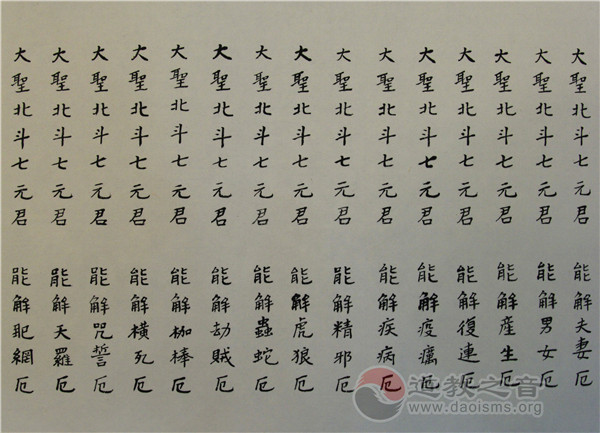 大聖北斗七元君 能解夫妻厄
大聖北斗七元君 能解男女厄
大聖北斗七元君 能解產生厄
大聖北斗七元君 能解復連厄
大聖北斗七元君 能解疫癘厄
大聖北斗七元君 能解疾病厄
大聖北斗七元君 能解精邪厄
大聖北斗七元君 能解虎狼厄
大聖北斗七元君 能解蟲蛇厄
大聖北斗七元君 能解劫賊厄
大聖北斗七元君 能解枷棒厄
大聖北斗七元君 能解橫死厄
大聖北斗七元君 能解咒誓厄
大聖北斗七元君 能解天羅厄
大聖北斗七元君 能解犯網厄
道教之音
www.daoisms.org